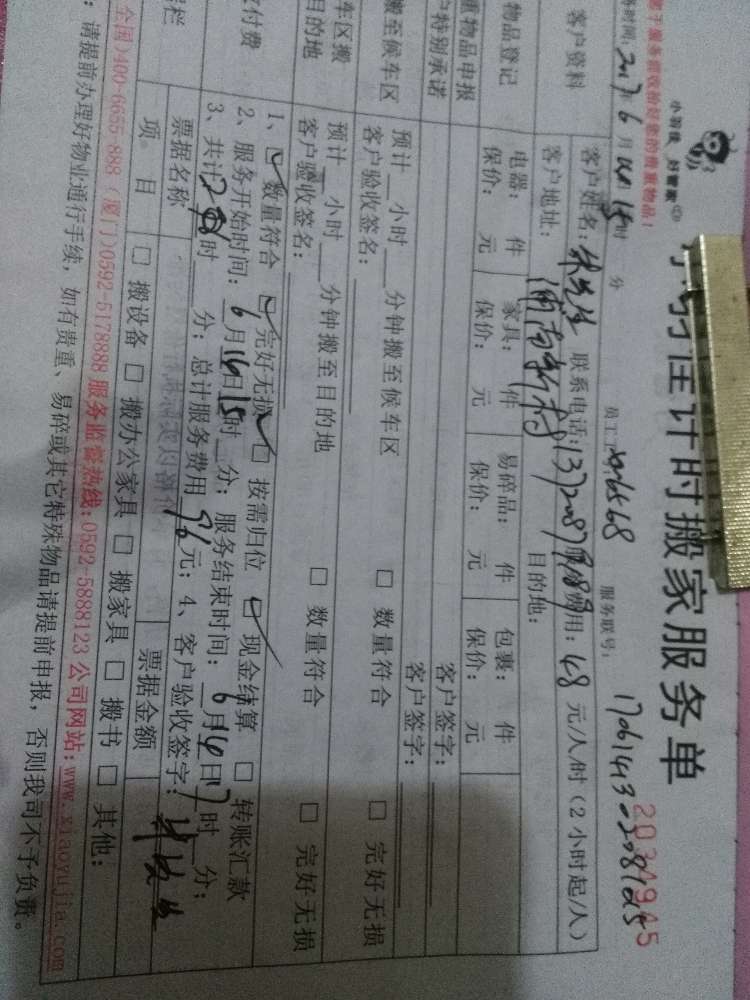 小羽佳 好管家
小羽佳计时搬家服务单
2031945
于服务前收拾好您的贵重物品！
时间: 2017年6月 日15时 分 员工工号: 服务联号:
客户资料 客户姓名: 林先生 联系电话: 费用: 48 元/人/时(2小时起/人)
客户地址: 目的地:
物品登记 电器: 件 家具: 件 易碎品: 件 包裹: 件
保价: 元 保价: 元 保价: 元 保价: 元
重物品申报 客户签字:
户特别承诺 客户签字:
搬至候车区 预计__小时__分钟搬至候车区 □ 数量符合 □ 完好无损
客户验收签名:
车区搬 预计__小时__分钟搬至目的地 □ 数量符合 □ 完好无损
目的地 客户验收签名:
付费 1、☑ 数量符合 ☑ 完好无损 ☑ 按需归位 ☑ 现金结算 □ 转账汇款
2、服务开始时间: 6月16日15时__分; 服务结束时间: 6月16日17时__分;
3、共计2时__分; 总计服务费用 96元; 4、客户验收签字: 林先生
栏 票据名称 票据金额
项 目 □ 搬设备 □ 搬办公家具 □ 搬家具 □ 搬书 □ 其他:
全国)400-6655-888 (厦门)0592-5178888 服务监督热线:0592-5888123 公司网站:www.xiaoyujia.com
: 请提前办理好物业通行手续, 如有贵重、易碎或其它特殊物品请提前申报, 否则我司不予负责。